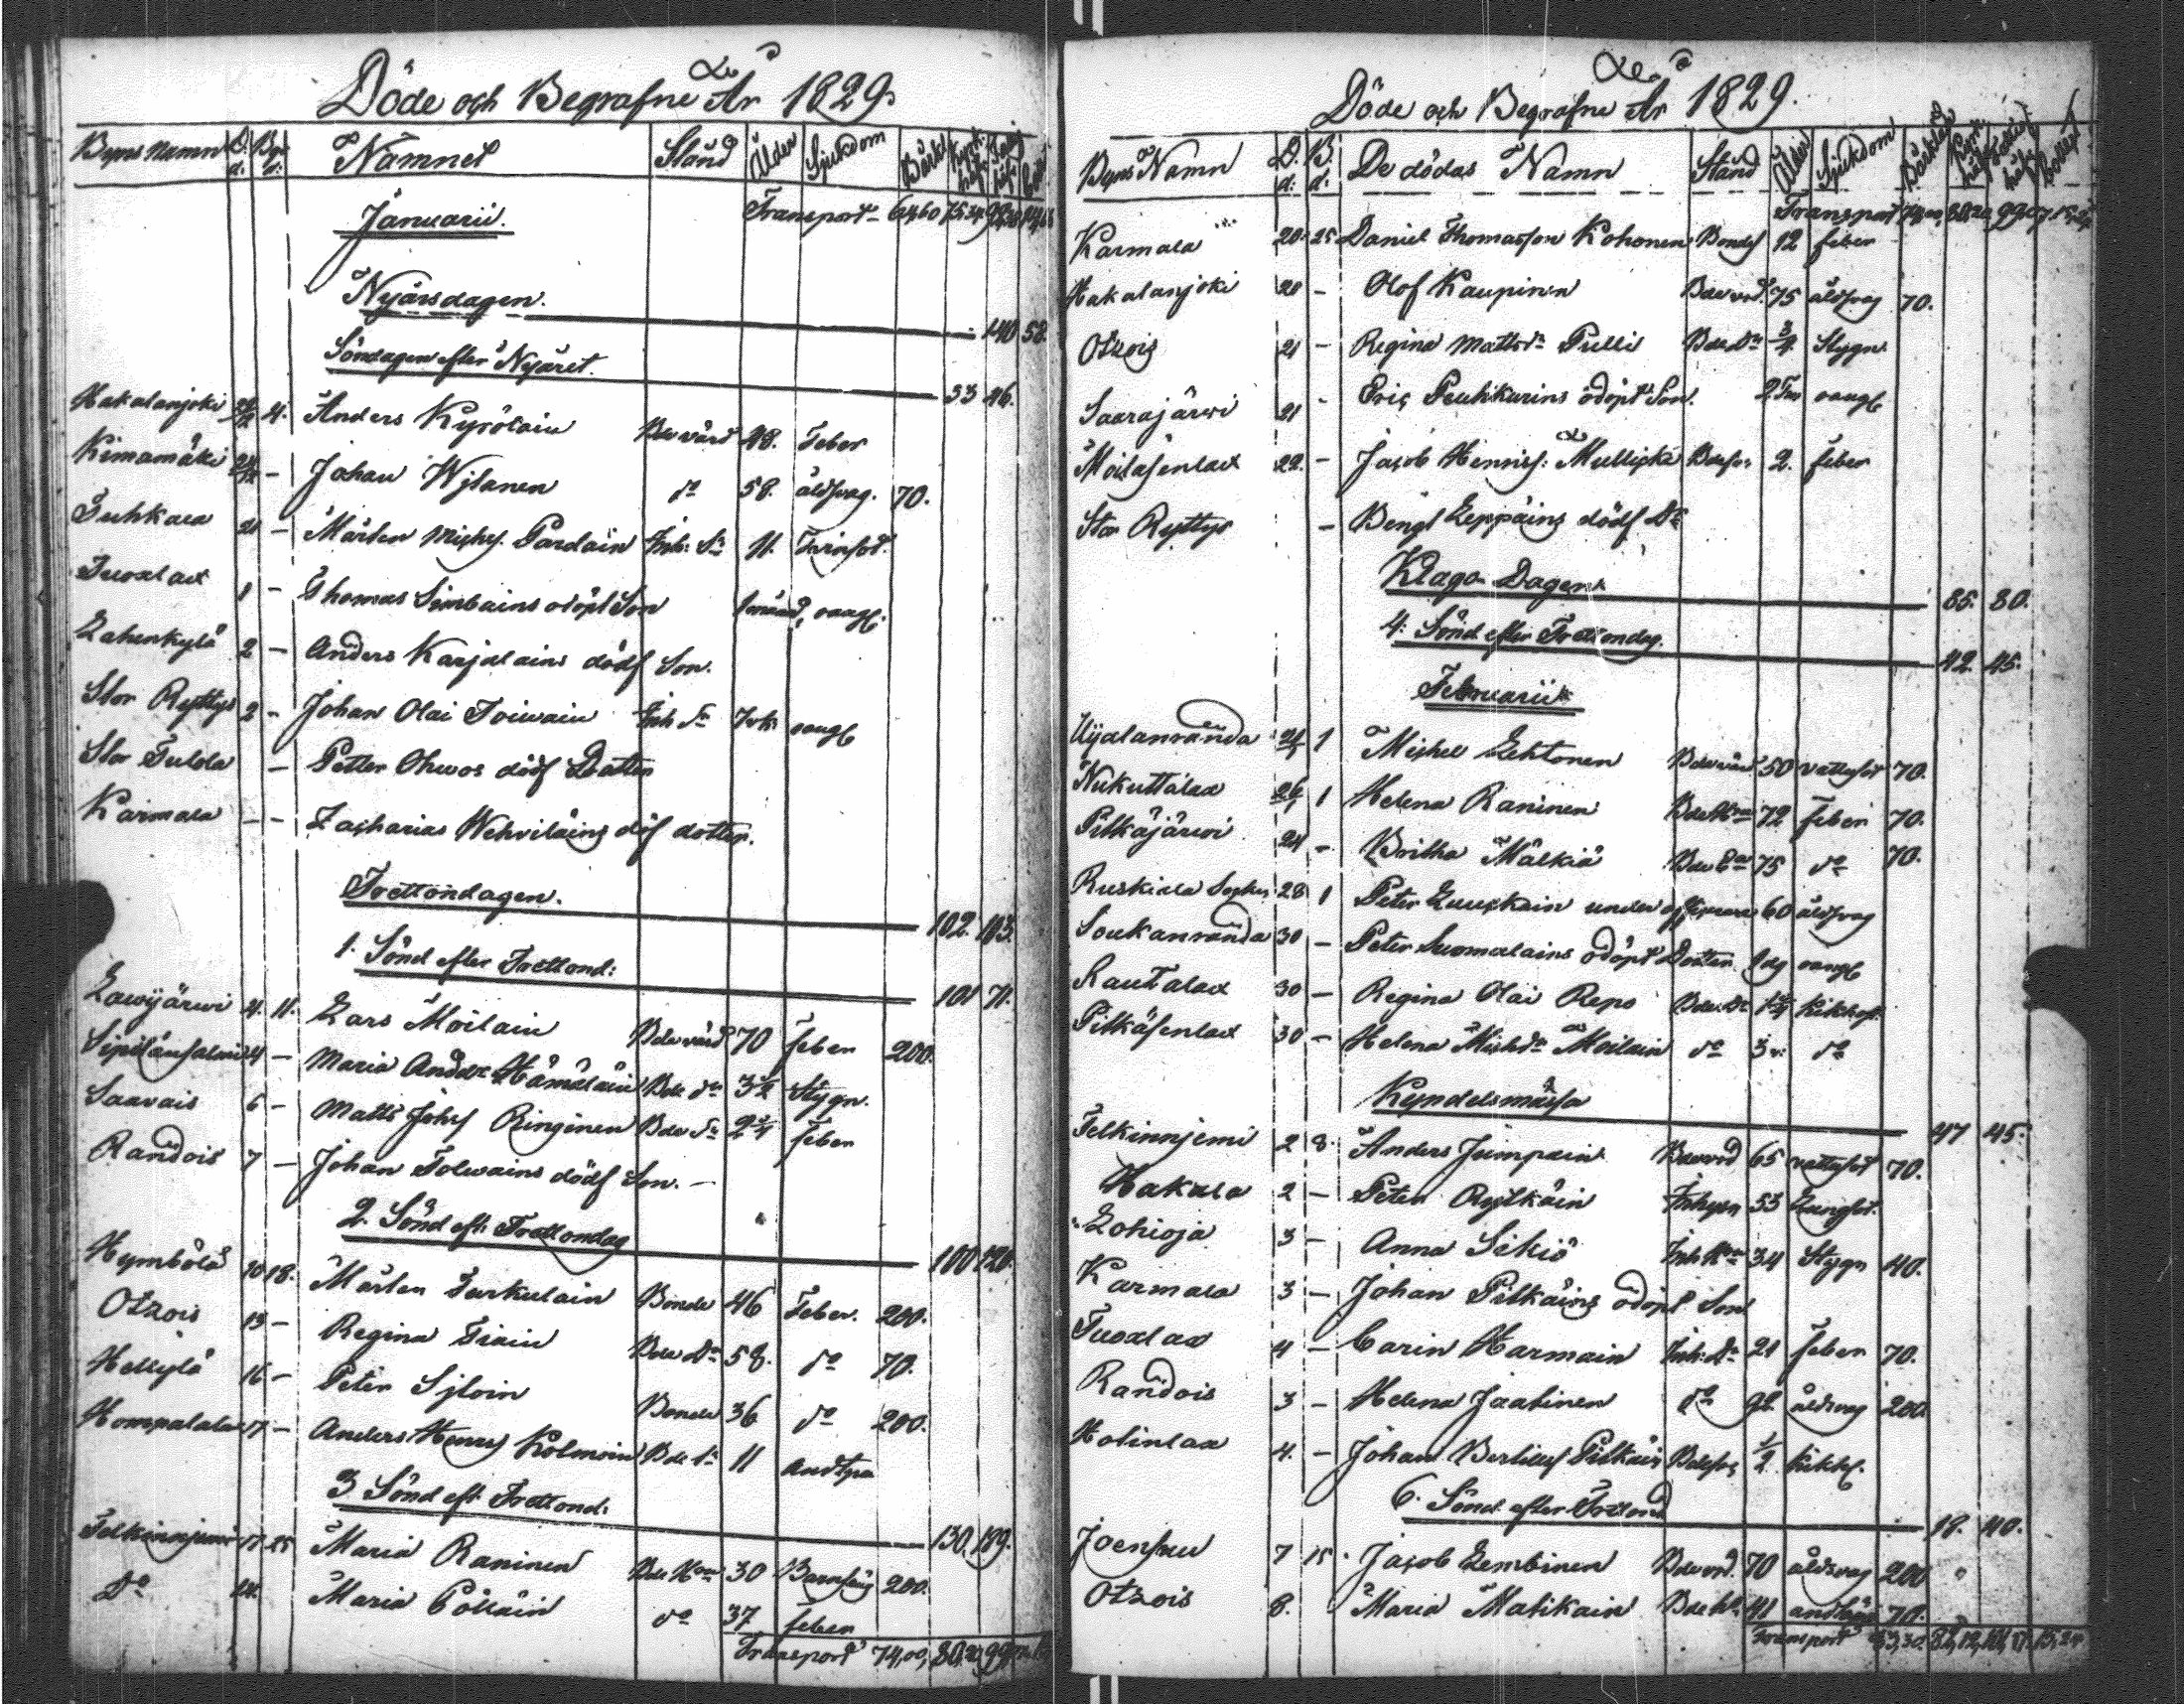 Döde och Begrafne År 1829
Byns Namn D. d. Beg. d. Namnet Stånd Ålder Sjukdom
Januarii. Transport 64,60
Nyårsdagen. 140 58.
Söndagen efter Nyåret. 33 46.
Hakalanjoki 4. Anders Kyröläin Bde värd 48. Feber
Kimamäki – Johan Wjlanen do 58. åldsvag. 70.
Puhkala – Mårten Michels. Pardain Inh: Sn 11.
Tuoxlax 1 – Thomas Simbains odöpt Son 1 månad, oangf.
Lahenkylä 2 – Anders Karjalains dödf Son.
Stor Ryttys 2 – Johan Olai Toiwain Inh Sn oangf
Stor Pulda – Petter Ohwos dödf Dotter
Karmala – – Zacharias Wehviläins döf dotter.
Trettondagen. 102. 103.
1. Sönd efter Trettond: 101 71.
Lawijärwi 4. 11. Lars Moilain Bde värd 70 feber 200.
4 – Maria Hämäläin Bde dr 3½ Stygn.
Saavais 6 – Matts Johs Ringinen Bde Sn 2¼ feber
Randois 7 – Johan Tolwains dödf Son. –
2. Sönd eft: Trettondag 100 120.
Hymbölä 10 18. Mårten Turkulain Bonde 46 Feber. 200.
Otzois 13 – Regina Tiain Bde Dr 58. do 70.
Hellylä 16 – Peter Sjloin Bonde 36 do 200.
Hompalala 17 – Anders Kolmoin Bde Sn 11
3 Sönd eft. Trettond: 130. 189.
Telkinnjemi 17 25 Maria Raninen Bde Hu 30 Barnsäng 200.
Do 14. Maria Cölläin do 37 feber
Transport 74,00,
Döde och Begrafne År 1829.
Byns Namn D. d: B. d: De dödas Namn Stånd Ålder Sjukdom
Transport
Karmala 20. 25 Daniel Thomasson Kohonen Bondes 12 feber
Hakalanjoki 20 – Olof Kaupinen Bde vrd. 75 åldsvag 70.
Otzois 21 – Regina Mattsdr Pulli Bde Dr ¾ Stygn.
Saarajärwi 21 – Eric Peuhkurins odöpt Son. oangf
Moilasenlax 22. – Jacob Henrics: Mullicka Bdeson 2. feber
Stor Ryttys – Bengt Leppäins dödf Dr
Klago Dagen. 85. 80.
4: Sönd. efter Trettondag. 42. 45.
Februarii
Uijalanranda 1 Michel Lehtonen Bde värd 50 vattusot 70.
Nukuttalax 26/1 1 Helena Raninen Bde Hu 72 feber 70.
Pitkäjärwi 24 – Britha Mälkiä Bde 75 do 70.
Ruskiala Sochn 28 1 Peter Luuckain under officerare 60 åldsvag
Soukanranda 30 – Peter Suomalains odöpt Dotter 1 dag oangf
Rautalax 30 – Regina Olai Repo Bde. Dr Kikhost.
Pitkäsenlax 30 – Helena Michdr Moilain do 3. do
Kyndelsmässa 47 45.
Telkinnjemi 2 8. Anders Jumpain Bdevrd 65 vattusot 70.
Hakala 2 – Peter Rytkäin Inhysn 53 Lungsot.
Lohioja 3 – Anna Sikiö Inh Hu 34 Stygn 40.
Karmala 3 – Johan Pitkäins odöpt Son
Tuoxlax 4 – Carin Harmain Inh: Dr 21 feber 70.
Randois 3 – Helena Jaatinen do åldsvag 200
Hotinlax 4. – Johan Bertills Pitkäin Bdeson ½ kikhs.
6. Sönd. efter Trettond 18. 40.
Joensuu 7 15. Jacob Lembinen Bdevrd. 70 åldsvag 200
Otzois 8. Maria Matikain Bde Hu 41 70.
Transport